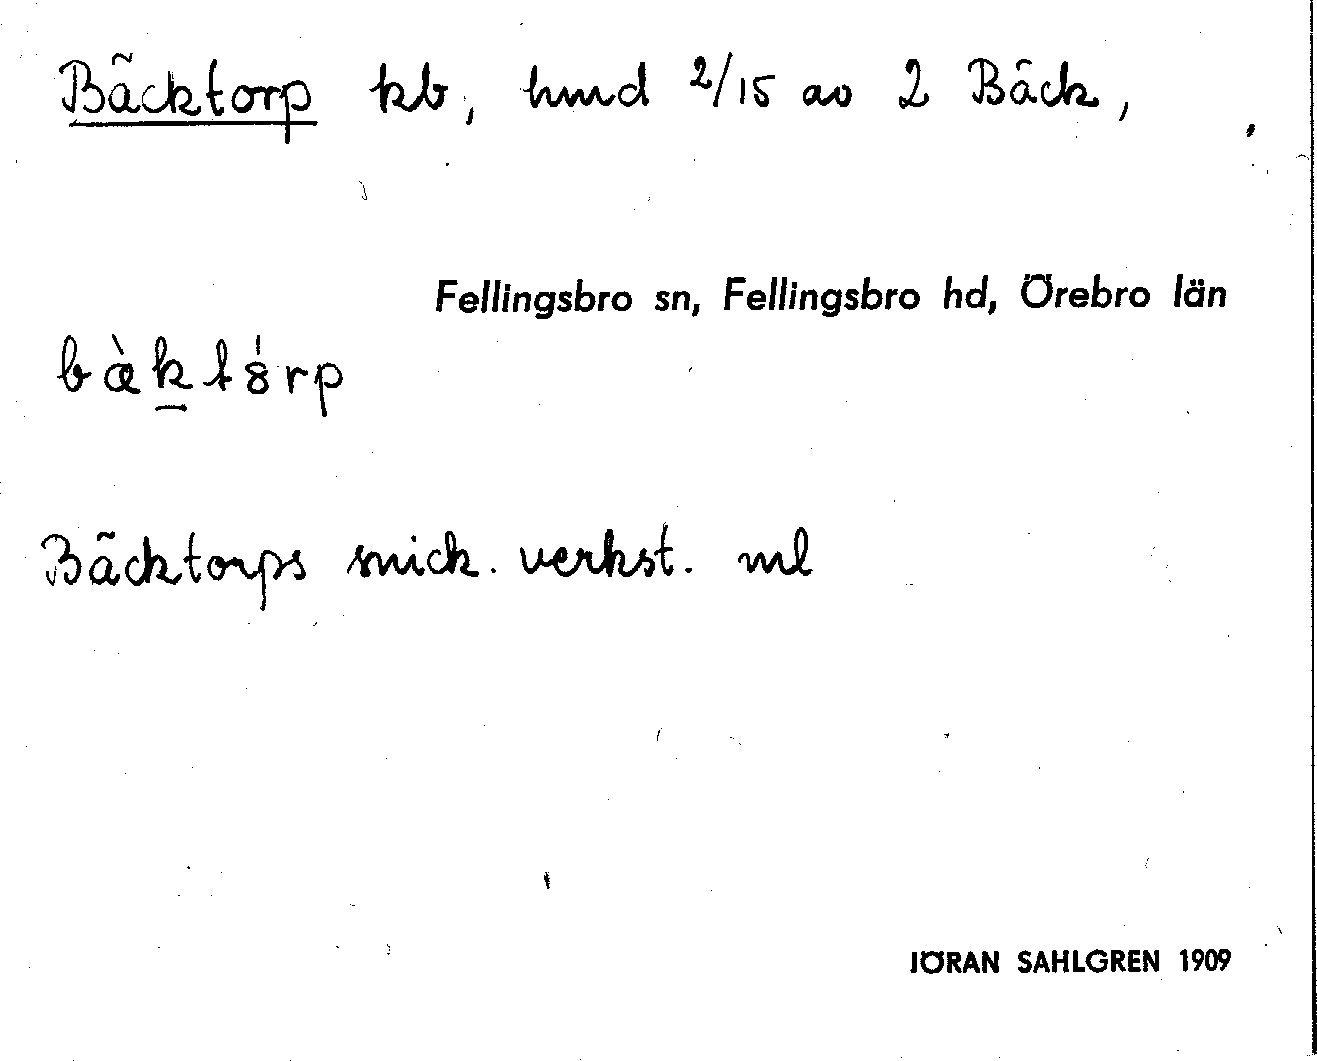 Bäcktorp kb, hmd 2/15 av 2 Bäck,
Fellingsbro sn, Fellingsbro hd, Örebro län
bæ̀k̠tȣ́rp
Bäcktorps snick. verkst. ml
JÖRAN SAHLGREN 1909